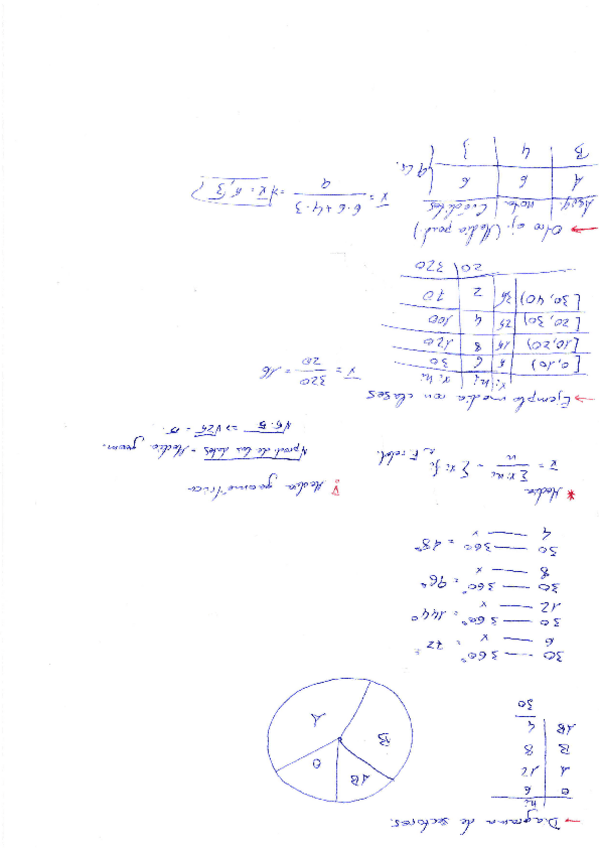 → Diagrama de sectores.
ni
O 6
A 12
B 8
AB 4
30
A
B
AB
O
30 — 360°
6 — x = 72°
30 — 360°
12 — x = 144°
30 — 360°
8 — x = 96°
30 — 360°
4 — x = 48°
* Media
x̄ = Σxi·ni / n = Σ xi·fi → F. relat.
Media geométrica
√prod de los datos = Media geom.
√5·5 => √25 = 5
→ Ejemplo media con clases
xi ni xi·ni
[0,10) 5 6 30
[10,20) 15 8 120
[20,30) 25 4 100
[30,40) 35 2 70
20 320
x̄ = 320 / 20 = 16
→ Otro ej. (Media pond.)
Asig. nota Créditos
A 6 6
B 4 3
x̄ = 6·6+4·3 / 9 => x̄ = 5,3